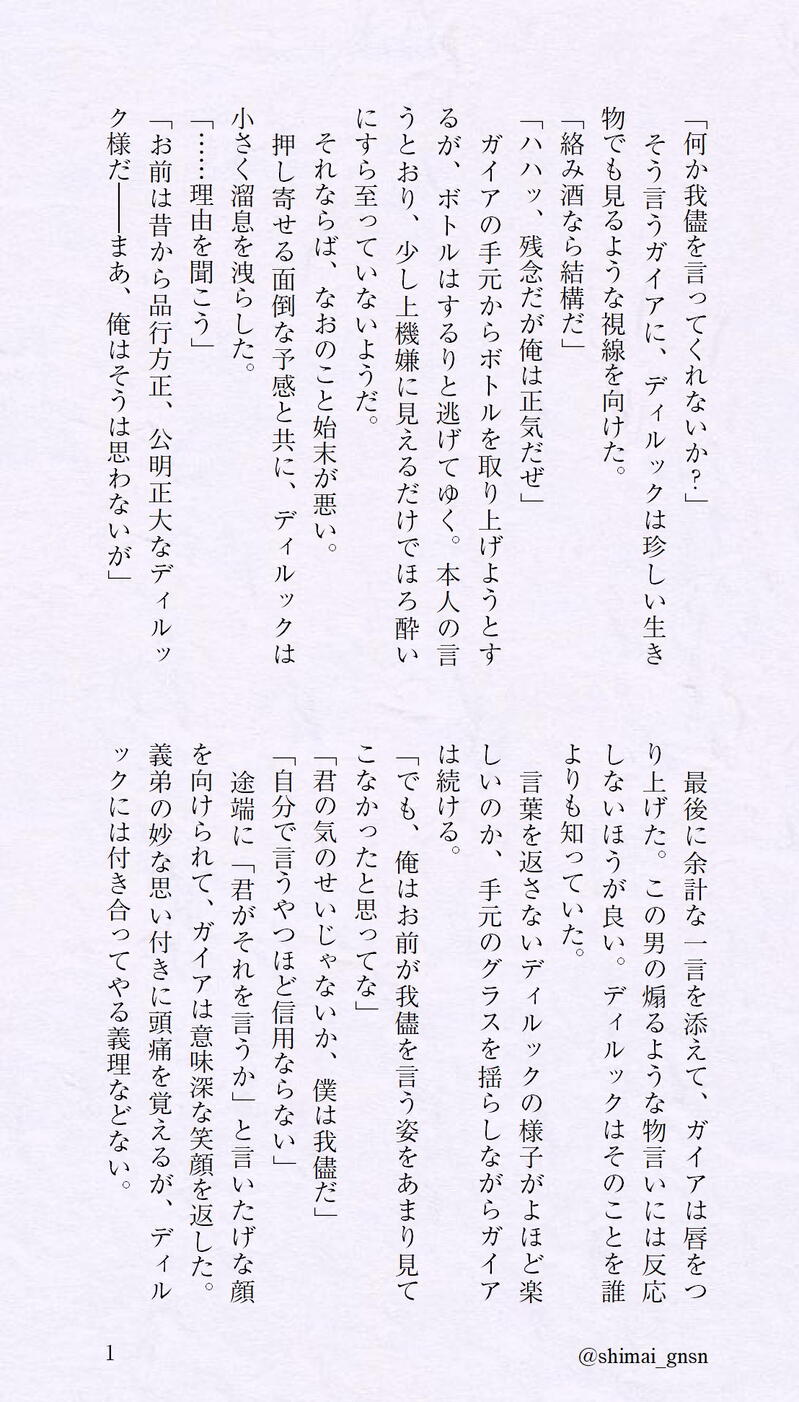 「何か我儘を言ってくれないか？」
そう言うガイアに、ディルックは珍しい生き
物でも見るような視線を向けた。
「絡み酒なら結構だ」
「ハハッ、残念だが俺は正気だぜ」
ガイアの手元からボトルを取り上げようとす
るが、ボトルはするりと逃げてゆく。本人の言
うとおり、少し上機嫌に見えるだけでほろ酔い
にすら至っていないようだ。
それならば、なおのこと始末が悪い。
押し寄せる面倒な予感と共に、ディルックは
小さく溜息を洩らした。
「……理由を聞こう」
「お前は昔から品行方正、公明正大なディルッ
ク様だ――まあ、俺はそうは思わないが」
最後に余計な一言を添えて、ガイアは唇をつ
り上げた。この男の煽るような物言いには反応
しないほうが良い。ディルックはそのことを誰
よりも知っていた。
言葉を返さないディルックの様子がよほど楽
しいのか、手元のグラスを揺らしながらガイア
は続ける。
「でも、俺はお前が我儘を言う姿をあまり見て
こなかったと思ってな」
「君の気のせいじゃないか、僕は我儘だ」
「自分で言うやつほど信用ならない」
途端に「君がそれを言うか」と言いたげな顔
を向けられて、ガイアは意味深な笑顔を返した。
義弟の妙な思い付きに頭痛を覚えるが、ディル
ックには付き合ってやる義理などない。
1
@shimai_gnsn